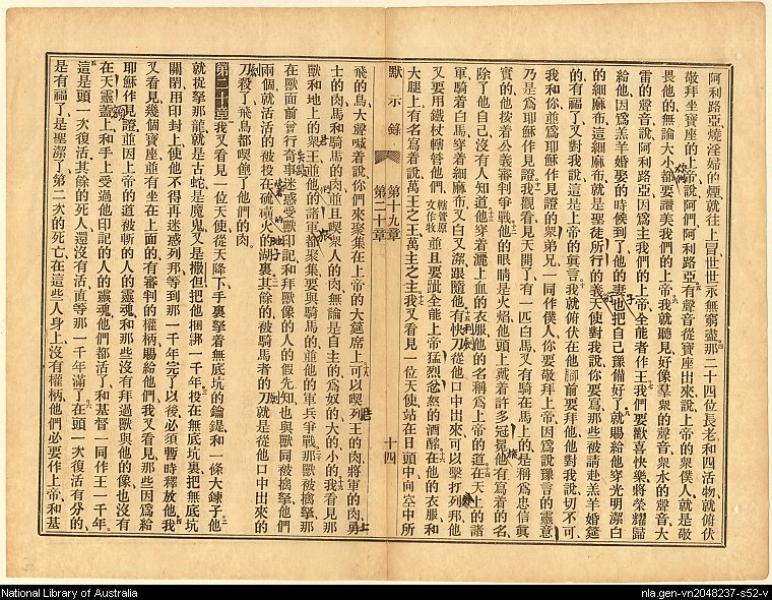 阿利路亞燒淫婦的煙就往上冒世世永無窮盡那二十四位長老和四活物就俯伏
敬拜坐寶座的上帝說阿們阿利路亞有聲音從寶座出來說上帝的衆僕人就是敬
畏他的無論大小都要讚美我們的上帝我就聽見好像羣衆的聲音衆水的聲音大
雷的聲音說阿利路亞因爲主我們的上帝全能者作王我們要歡喜快樂將榮耀歸
給他因爲羔羊婚娶的時候到了他的妻也把自己豫備好了就賜給他穿光明潔白
的細麻布這細麻布就是聖徒所行的義天使對我說你要寫那些被請赴羔羊婚筵
的有福了又對我說這是上帝的眞言我就俯伏在他脚前要拜他他對我說切不可
我和你並爲耶穌作見證的衆弟兄一同作僕人你要敬拜上帝因爲說豫言的靈意
乃是爲耶穌作見證我觀看見天開了有一匹白馬又有騎在馬上的是稱爲忠信眞
實的他按着公義審判爭戰他的眼睛是火焰他頭上戴着許多冠冕他有寫着的名
除了他自己沒有人知道他穿着灑上血的衣服他的名稱爲上帝的道在天上的諸
軍騎着白馬穿着細麻布又白又潔跟隨他有快刀從他口中出來可以擊打列邦他
又要用鐵杖轄管他們轄管原文作牧並且要躧全能上帝猛烈忿怒的酒醡在他的衣服和
大腿上有名寫着說萬王之王萬主之主我又看見一位天使站在日頭中向空中所
默示錄 第十九章 第二十章 十四
飛的鳥大聲喊着說你們來聚集在上帝的大筵席上可以喫列王的肉將軍的肉勇
士的肉馬和騎馬的肉並且喫衆人的肉無論是自主的爲奴的大的小的我看見那
獸和地上的衆王並他的諸軍都聚集要與騎馬的並他的軍兵爭戰那獸被擒拏那
在獸面前曾行奇事迷惑受獸印記和拜獸像的人的假先知也與獸同被擒拏他們
兩個就活活的被投在硫磺火的湖裏其餘的被騎馬者的刀就是從他口中出來的
刀殺了飛鳥都喫飽了他們的肉
第二十章我又看見一位天使從天降下手裏拏着無底坑的鑰鍉和一條大鍊子他
就捉拏那龍就是古蛇是魔鬼又是撒但把他捆綁一千年投在無底坑裏把無底坑
關閉用印封上使他不得再迷惑列邦等到那一千年完了以後必須暫時釋放他我
又看見幾個寶座並有坐在上面的有審判的權柄賜給他們我又看見那些因爲給
耶穌作見證並因上帝的道被斬的人的靈魂和那些沒有拜過獸與他的像也沒有
在天靈蓋上和手上受過他印記的人的靈魂他們都活了和基督一同作王一千年
這是頭一次復活其餘的死人還沒有活直等那一千年滿了在頭一次復活有分的
是有福了是聖潔了第二次的死亡在這些人身上沒有權柄他們必要作上帝和基
National Library of Australia
nla.gen-vn2048237-s52-v